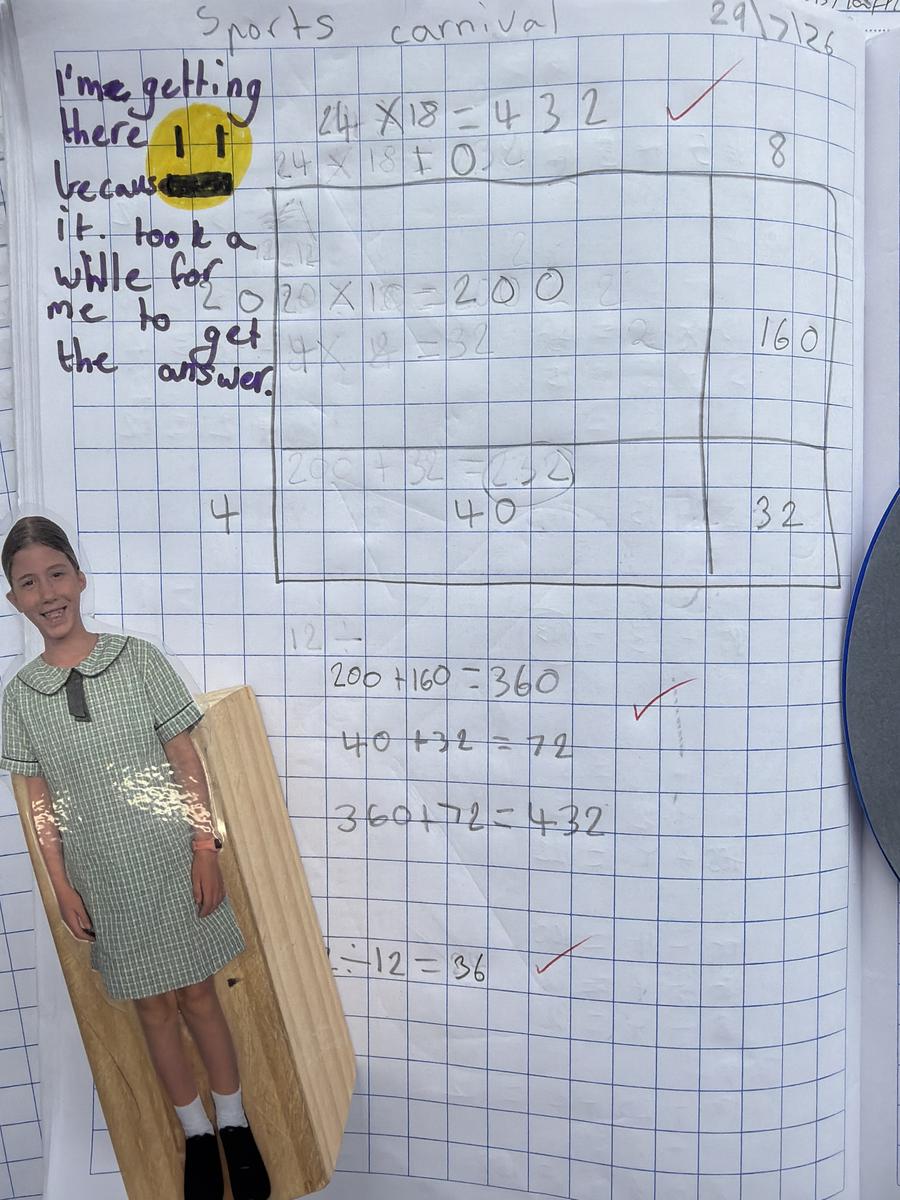 Sports carnival 29\7\26
I'me getting
there
because
it. took a
while for
me to
get
the answer.
24 × 18 = 432
24 × 18 = 10 8
20 20 × 10 = 200
160
4 × 8 = 32
200 + 32 = 232
4 40 32
12 ÷
200 + 160 = 360
40 + 32 = 72
360 + 72 = 432
÷ 12 = 36